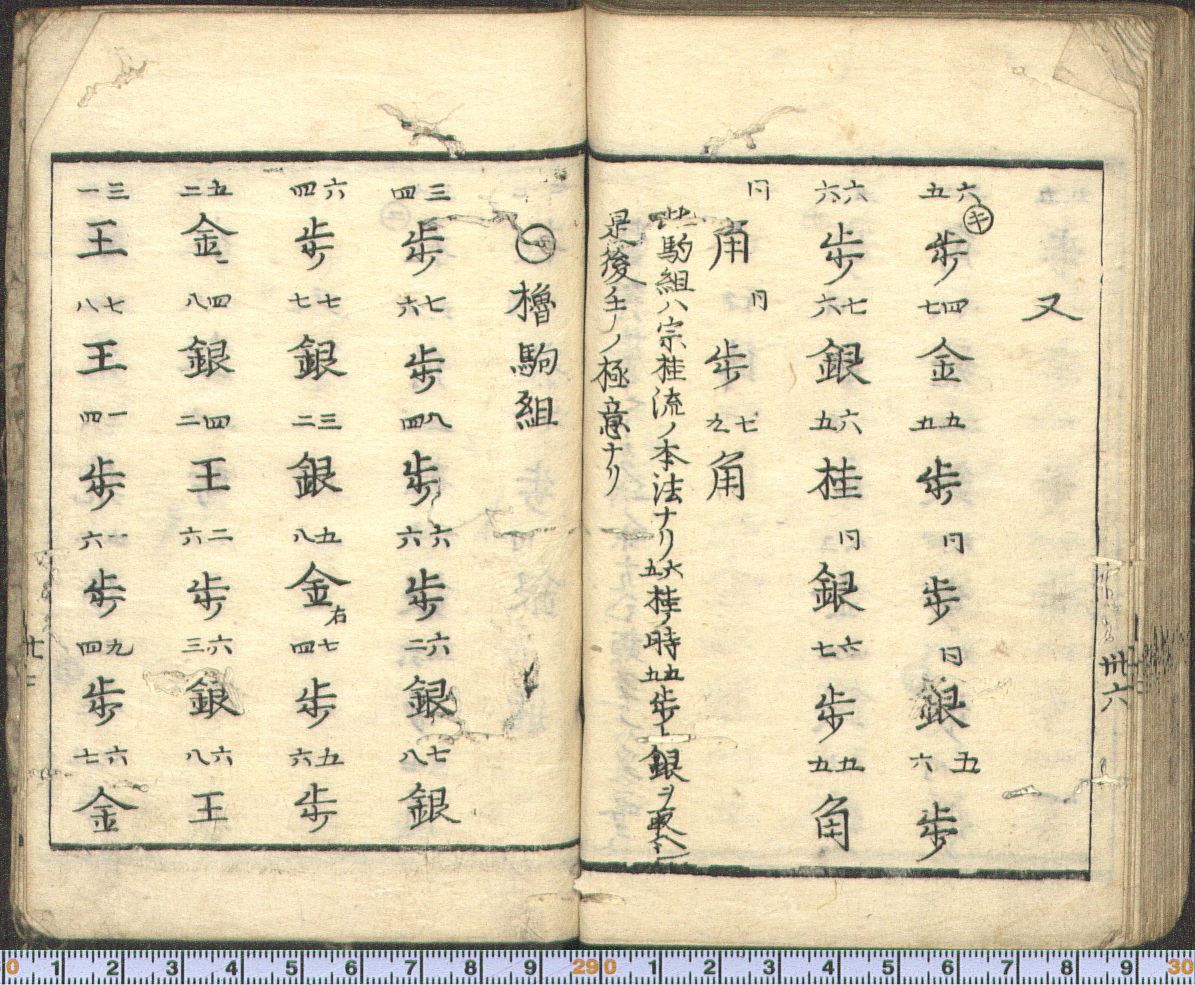 又
六五歩キ四七金五五歩同歩同銀五六歩
六六歩七六銀六五桂同銀六七歩五五角
同角同歩七九角
此駒組ハ宗桂流ノ本法ナリ六五桂ノ時五五歩ト銀ヲ
是後手ノ極意ナリ
卅六
一櫓駒組
三四歩七六歩八四歩六六歩六二銀七八銀
六四歩七七銀三二銀五八金右七四歩五六歩
五二金四八銀四二王二六歩六三銀六八王
三一王七八王一四歩一六歩九四歩六七金
0 1 2 3 4 5 6 7 8 9 29 0 1 2 3 4 5 6 7 8 9 30